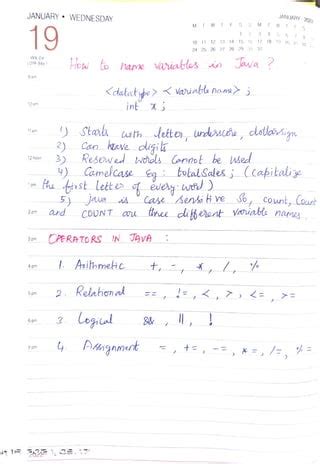 JANUARY • WEDNESDAY
19
JANUARY
M T W T F S S M T W T F S S
How to name variables in Java ?
<datatype> <variable name> ;
int x ;
1) Starts with letter, underscore, dollarsign
2) Can have digits
3) Reserved words cannot be used
4) CamelCase Eg : totalSales ; (capitalize
the first letter of every word)
5) Java is case sensitive So, count, Count
and COUNT are three different variable names.
OPERATORS IN JAVA :
1. Arithmetic +, -, *, /, %
2. Relational ==, !=, <, >, <=, >=
3. Logical &&, ||, !
4. Assignment =, +=, -=, *=, /=, %=